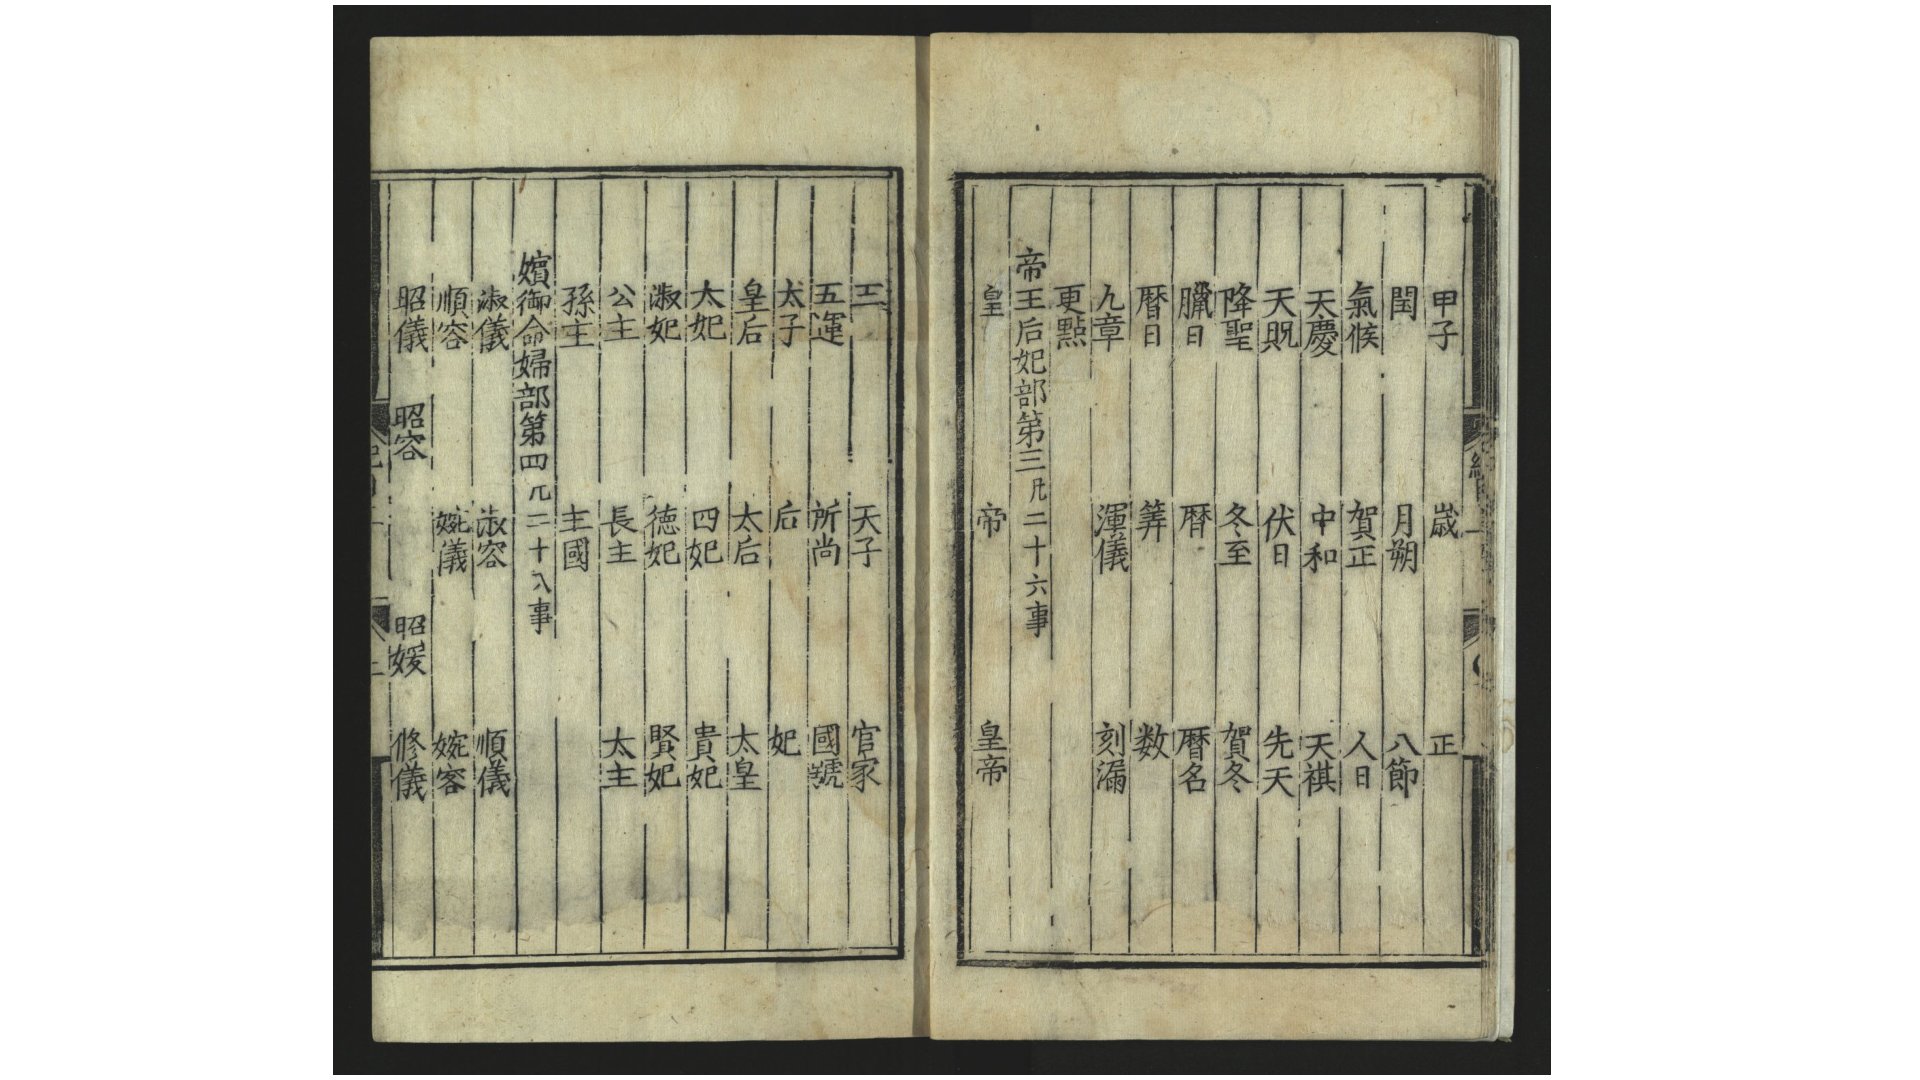 甲子 歳 正
閏 月朔 八節
氣候 賀正 人日
天慶 中和 天祺
天貺 伏日 先天
降聖 冬至 賀冬
臘日 暦 暦名
暦日 筭 数
九章 渾儀 刻漏
更點
帝王后妃部第三凡二十六事
皇 帝 皇帝
王 天子 官家
五運 所尚 國號
太子 后 妃
皇后 太后 太皇
太妃 四妃 貴妃
淑妃 德妃 賢妃
公主 長主 太主
孫主 主國
嬪御命婦部第四凡二十八事
淑儀 淑容 順儀
順容 婉儀 婉容
昭儀 昭容 昭媛 修儀